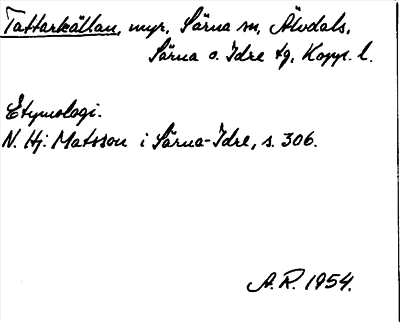 Tattarkällan, myr, Särna sn, Älvdals,
Särna o. Idre tg, Kopp. l.
Etymologi.
N. Hj. Matsson i Särna-Idre, s. 306.
A.R. 1954.